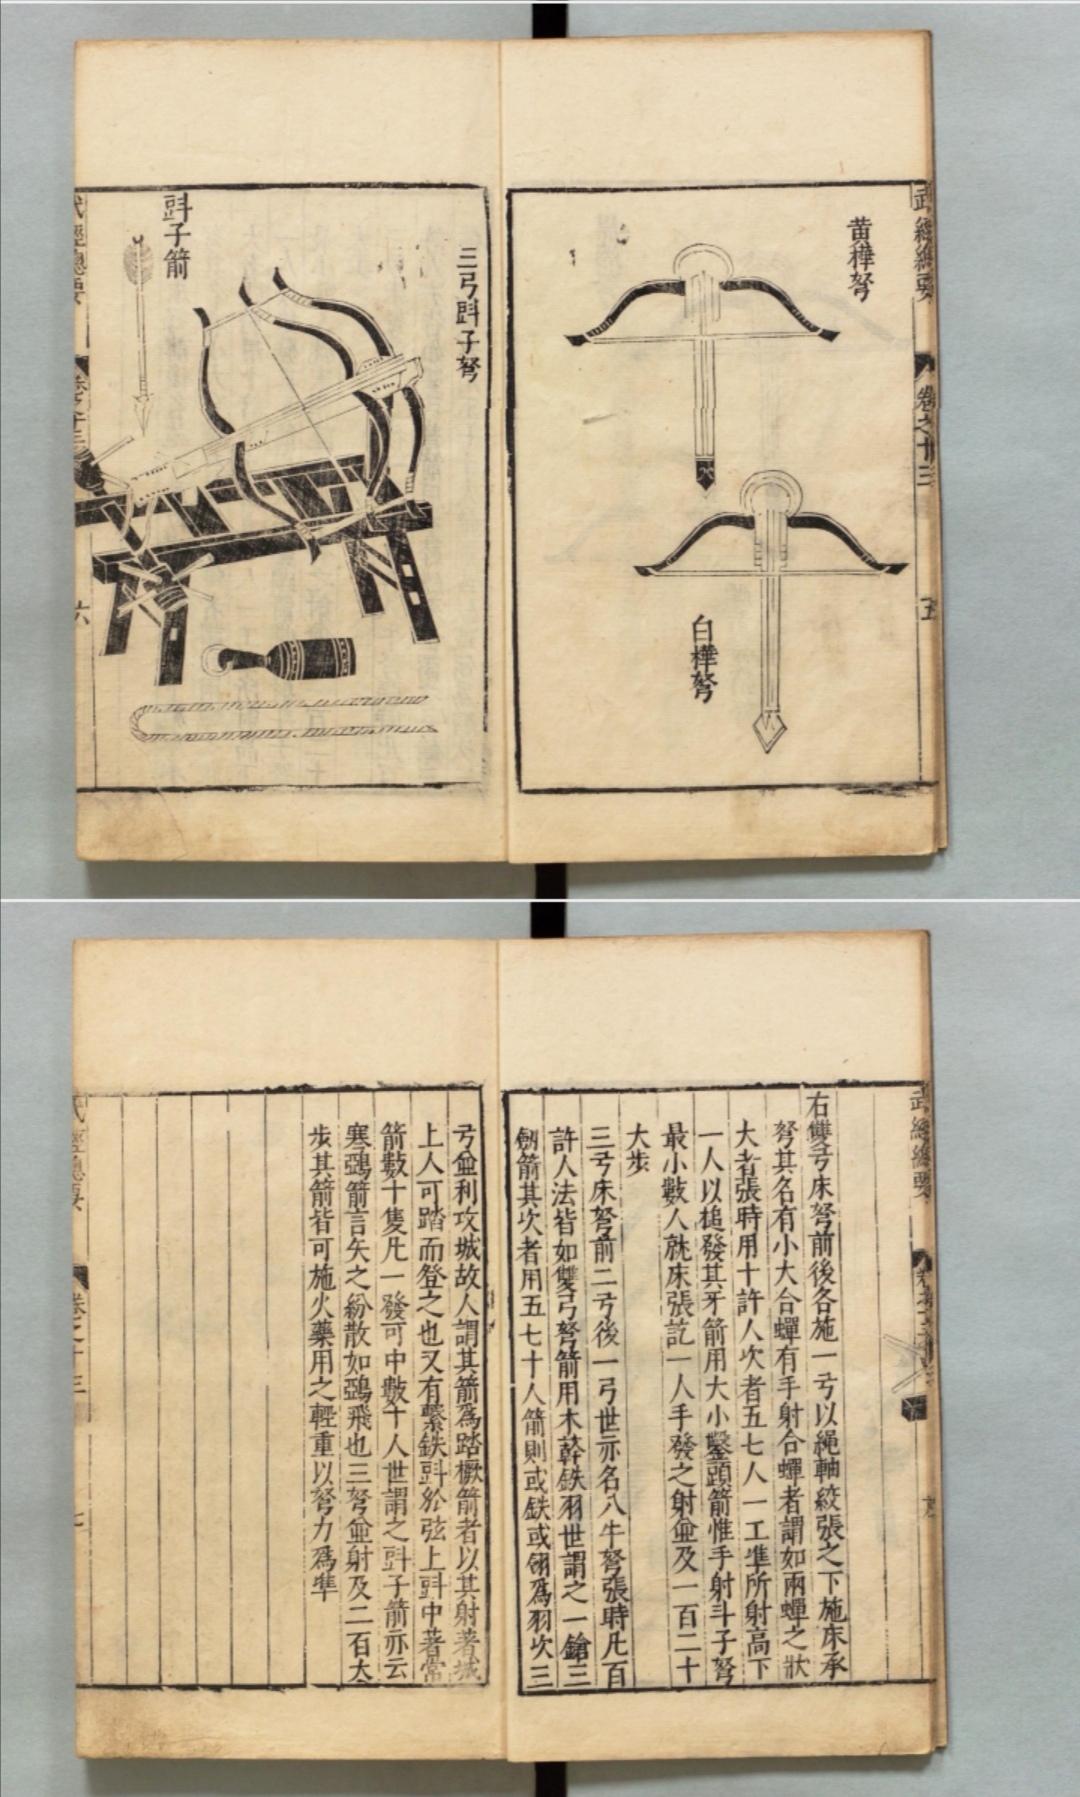 武經總要
卷之十三
五
黄樺弩
白樺弩
三弓㪷子弩
㪷子箭
武經總要
卷之十三
六
武經總要
右雙弓床弩前後各施一弓以繩軸絞張之下施床承
弩其名有小大合蟬有手射合蟬者謂如兩蟬之狀
大者張時用十許人次者五七人一工準所射高下
一人以槌發其牙箭用大小鑿頭箭惟手射斗子弩
最小數人就床張訖一人手發之射並及一百二十
大步
三弓床弩前二弓後一弓世亦名八牛弩張時凡百
許人法皆如雙弓弩箭用木簳鉄羽世謂之一鎗三
劒箭其次者用五七十人箭則或鉄或翎爲羽次三
弓並利攻城故人謂其箭爲踏橛箭者以其射著城
上人可踏而登之也又有繫鉄㪷於弦上㪷中著常
箭數十隻凡一發可中數十人世謂之㪷子箭亦云
寒鵶箭言矢之紛散如鵶飛也三弩並射及二百大
步其箭皆可施火藥用之輕重以弩力爲準
武經總要
卷之十三
七